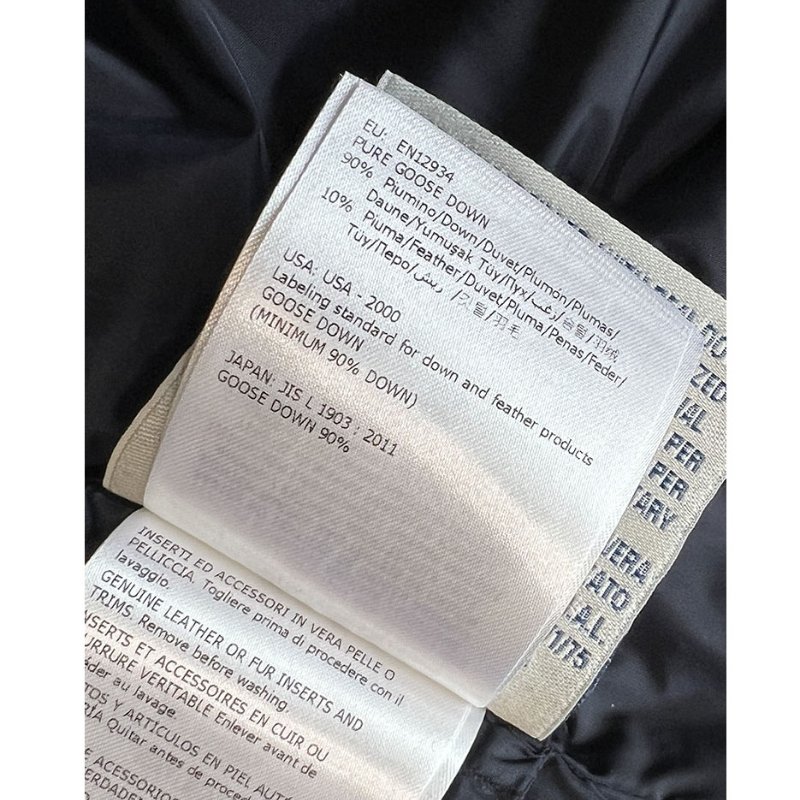 EU: EN12934
PURE GOOSE DOWN
90% Piumino/Down/Duvet/Plumón/Plumas/
Daune/Yumuşak Tüy/Пух/زغب/솜털/羽绒
10% Piuma/Feather/Duvet/Pluma/Penas/Feder/
Tüy/Перо/ريش/깃털/羽毛
USA: USA - 2000
Labeling standard for down and feather products
GOOSE DOWN
(MINIMUM 90% DOWN)
JAPAN: JIS L 1903 : 2011
GOOSE DOWN 90%
INSERTI ED ACCESSORI IN VERA PELLE O
PELLICCIA. Togliere prima di procedere con il
lavaggio.
GENUINE LEATHER OR FUR INSERTS AND
TRIMS. Remove before washing.
NSERTS ET ACCESSOIRES EN CUIR OU
URRURE VERITABLE Enlever avant de
éder au lavage
TOS Y ARTÍCULOS EN PIEL AUTÉ
RÍA Quitar antes de proced
E ACESSÓRIOS
ERDADE
ZED
PER
PER
ARY
VERA
ATO
.A.L.
1/75